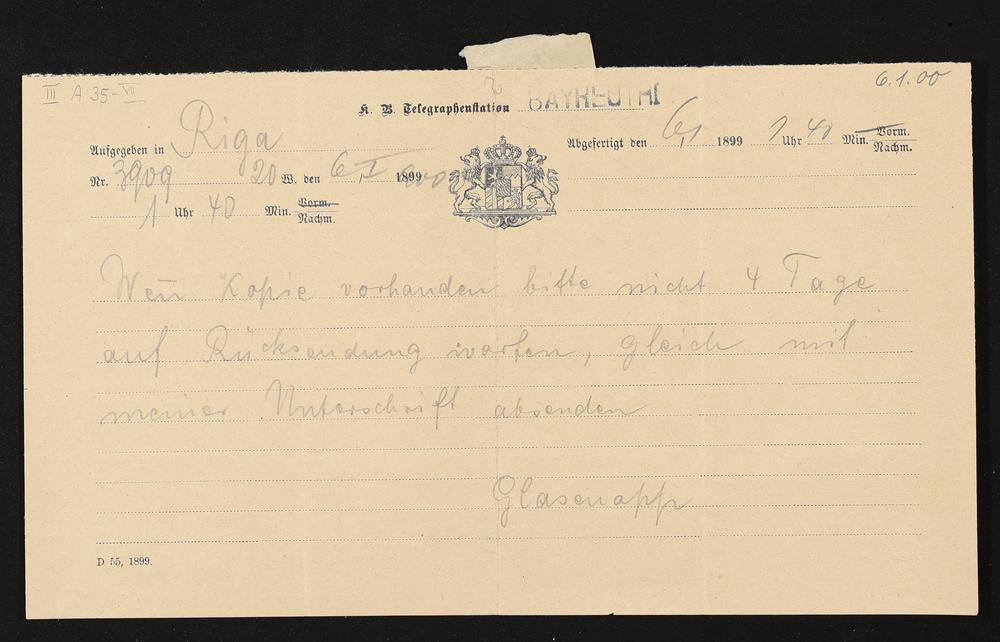 III A 35-VII
6.1.00
K. B. Telegraphenstation BAYREUTH
Aufgegeben in Riga
Abgefertigt den 6/1 1899 1 Uhr 40 Min. Vorm. Nachm.
Nr. 3909 20 W. den 6/I 1899 900
1 Uhr 40 Min. Vorm. Nachm.
Wen̄ Kopie vorhanden bitte nicht 4 Tage
auf Rücksendung warten, gleich mit
meiner Unterschrift absenden
Glasenapp
D 55, 1899.